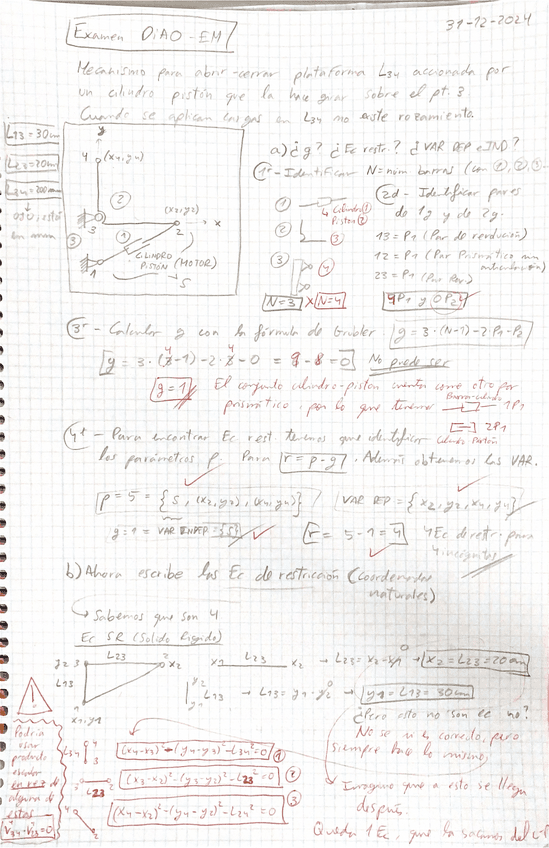 31-12-2024
Examen DiAO-EM
Mecanismo para abrir-cerrar plataforma L34 accionada por
un cilindro pistón que la hace girar sobre el pt. 3
Cuando se aplican cargas en L34 no existe rozamiento.
L13=30cm
L23=20cm
y
4 (x4,y4)
2
3
(x2,y2)
2
x
3
1
1
CILINDRO
PISTÓN (MOTOR)
S
a) ¿g? ¿Ec restr.? ¿VAR DEP e IND?
1º- Identificar N=núm barras (con 1, 2, 3...
1
Cilindro 1
Pistón 2
2
3
3
4
N=3 X N=4
2d - Identificar pares
de 1g y de 2g.
13=P1 (Par de revolución)
12=P1 (Par Prismático sin
articulación)
23=P1
4P1 y 0P2
3º - Calcular g con la fórmula de Grübler g=3·(N-1)-2P1-P2
g=3·(4-1)-2·4-0 = 9-8=0 No puede ser
g=1 El conjunto cilindro-pistón cuenta como otro par
prismático, por lo que tenemos 1P1
2P1
4º - Para encontrar Ec rest. tenemos que identificar
los parámetros p. Para r=p-g. Además obtenemos las VAR.
p=5={S, (x2,y2), (x4,y4)} / VAR DEP={x2,y2,x4,y4}
g=1=VAR INDEP={S} r=5-1=4 4Ec de restr. para
4 incógnitas
b) Ahora escribe las Ec de restricción (coordenadas
naturales)
Sabemos que son 4
Ec SR (Sólido Rígido)
y2 3 L23 2 x2
L13
1
x1,y1
x1 L23 x2 → L23=x2-x1 → x2=L23=20cm
y2
y1
L13 → L13=y1-y2 → y1=L13=30cm
¿Pero esto no son ec no?
No se si es correcto, pero
siempre hace lo mismo,
Imagino que a esto se llega
después.
Podría
ser
producto
escalar
en vez de
alguna de
estas
L34
4
3
(x4-x3)²-(y4-y3)²-L34²=0 1
L23
(x3-x2)²-(y3-y2)²-L23²=0 2
4
2
(x4-x2)²-(y4-y2)²-L24²=0 3
Queda 1 Ec, que la sacamos del